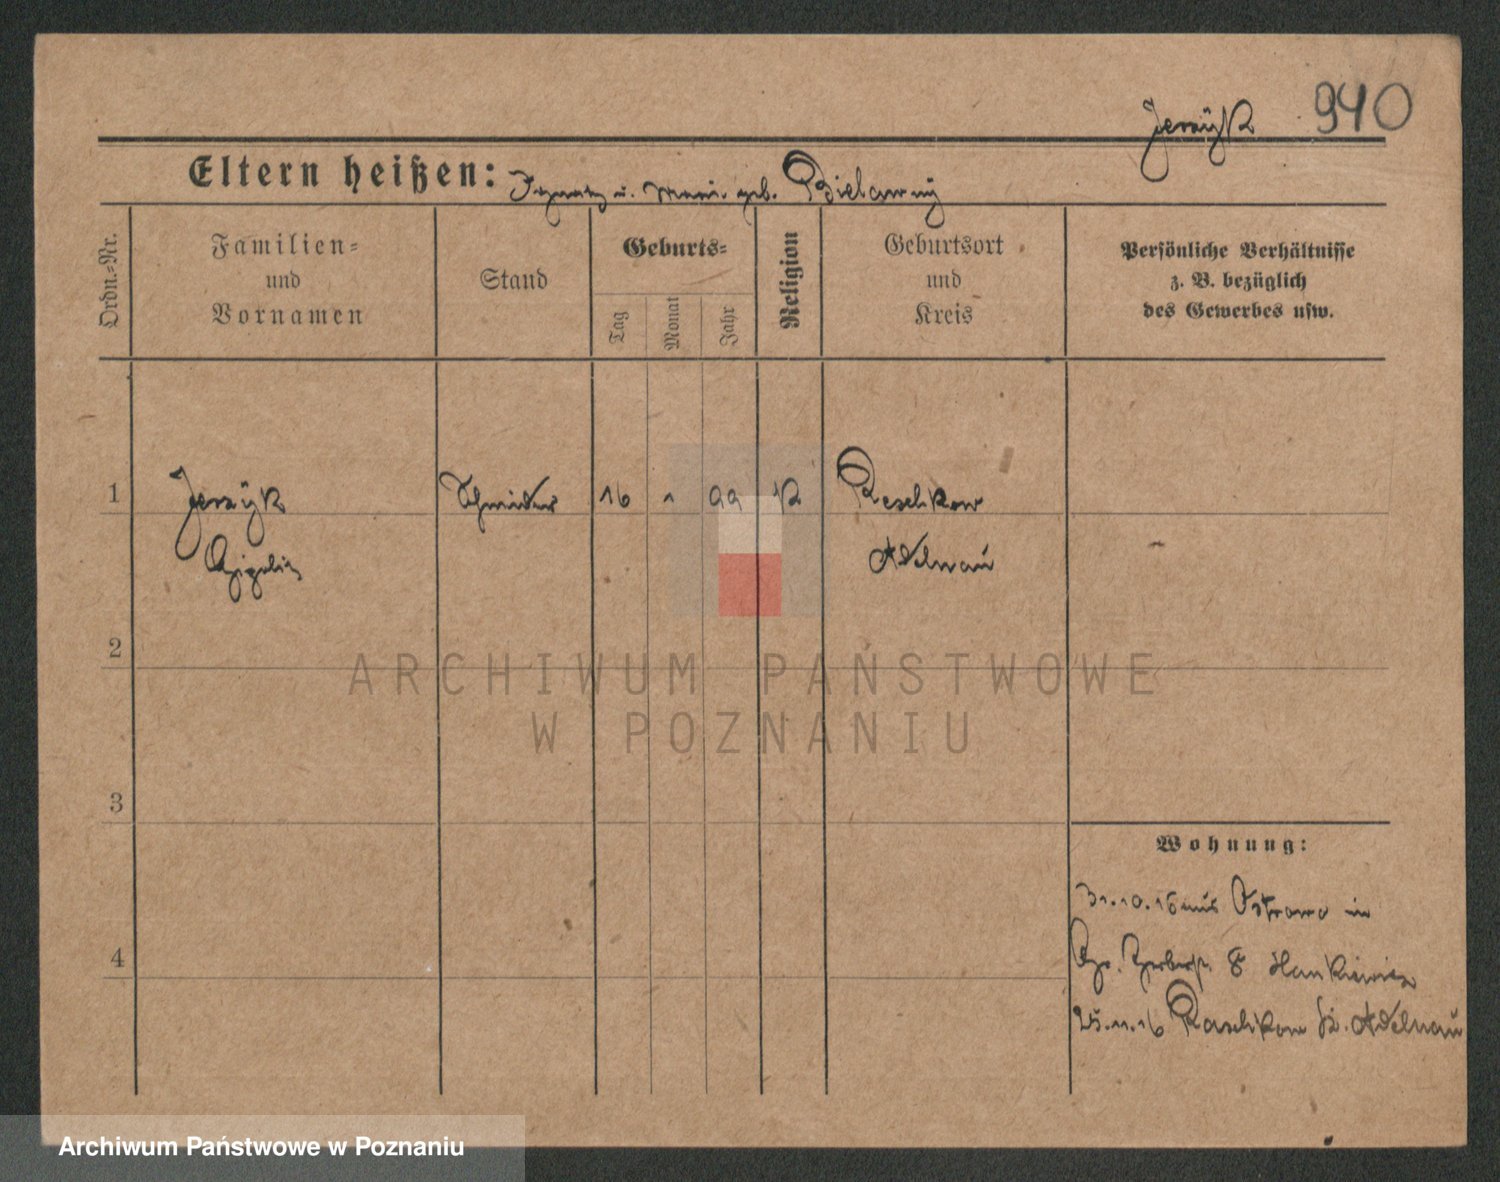 940
Jerzÿk
Eltern heißen: Ignatz u. Mari. geb. Bielawny
Ordn.=Nr.
Familien=
und
Vornamen
Stand
Geburts=
Tag
Monat
Jahr
Religion
Geburtsort
und
Kreis
Persönliche Verhältnisse
z. B. bezüglich
des Gewerbes usw.
1
Jerzÿk
Schneider
16
1
99
K
Raschkow
Adelnau
2
ARCHIWUM PAŃSTWOWE
W POZNANIU
3
Wohnung:
31.10.16 aus Ostrowo in
4
8
25.11.16 Raschkow Kr. Adelnau
Archiwum Państwowe w Poznaniu